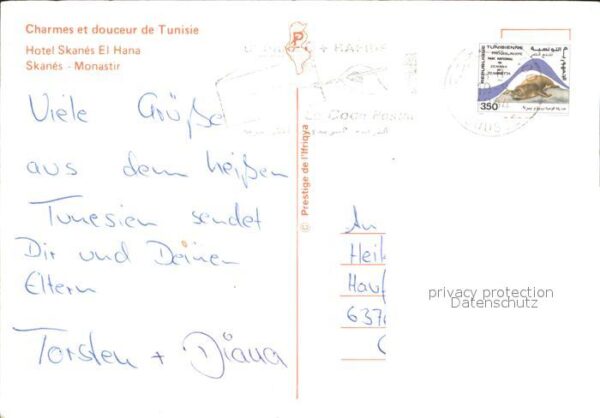 Charmes et douceur de Tunisie
Hotel Skanés El Hana
Skanés - Monastir
Viele Grüße
aus dem heißen
Tunesien sendet
Dir und Deinen
Eltern
Torsten + Diana
© Prestige de l'Ifriqya
Le Code Postal
REPUBLIQUE TUNISIENNE
PARC NATIONAL
350
An
Heik
Hauf
637
privacy protection
Datenschutz